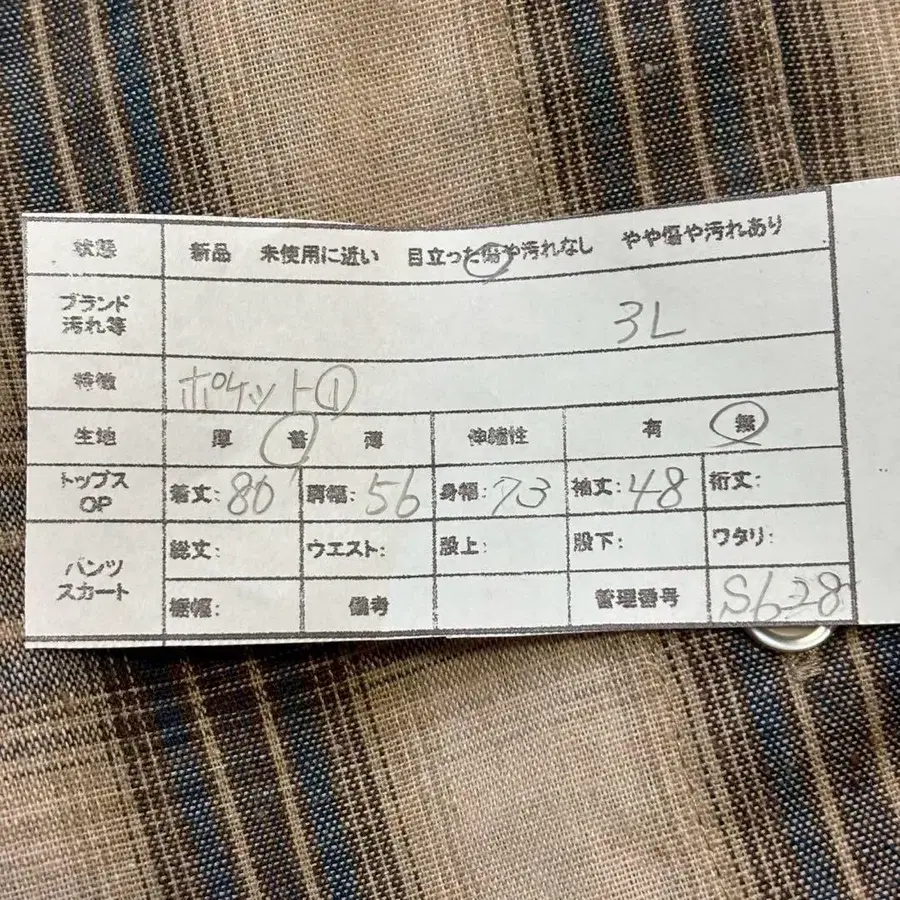 状態 新品 未使用に近い 目立った傷や汚れなし やや傷や汚れあり
ブランド
汚れ等
3L
特徴 ポケット①
生地 厚 普 薄 伸縮性 有 無
トップス
OP
着丈:80 肩幅:56 身幅:73 袖丈:48 裄丈:
パンツ
スカート
総丈: ウエスト: 股上: 股下: ワタリ:
裾幅: 備考 管理番号 S628